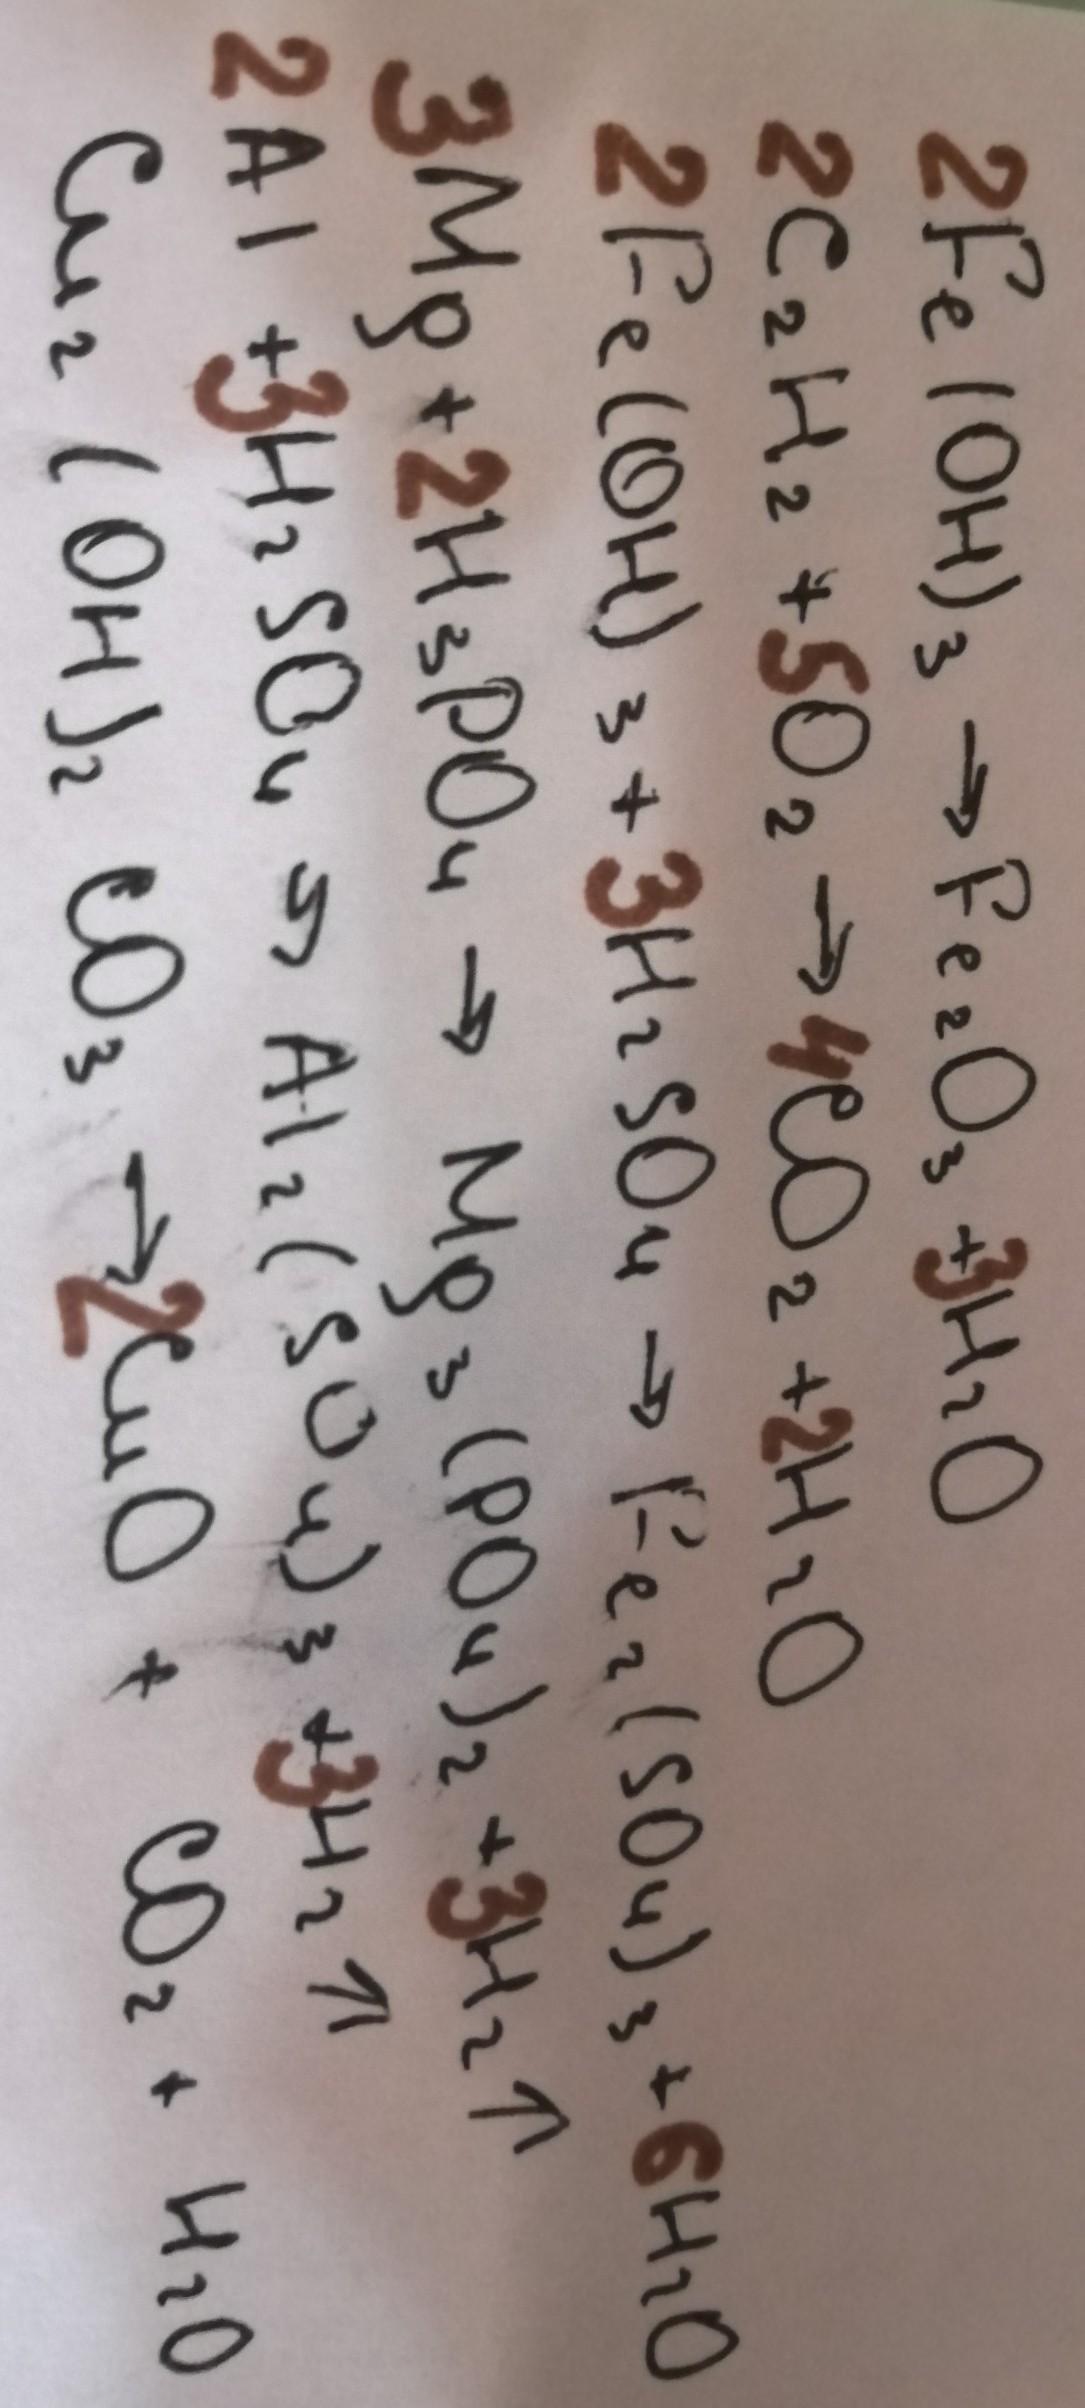 2Fe(OH)₃ → Fe₂O₃ + 3H₂O
2C₂H₂ + 5O₂ → 4CO₂ + 2H₂O
2Fe(OH)₃ + 3H₂SO₄ → Fe₂(SO₄)₃ + 6H₂O
3Mg + 2H₃PO₄ → Mg₃(PO₄)₂ + 3H₂↑
2Al + 3H₂SO₄ → Al₂(SO₄)₃ + 3H₂↑
Cu₂(OH)₂CO₃ → 2CuO + CO₂ + H₂O